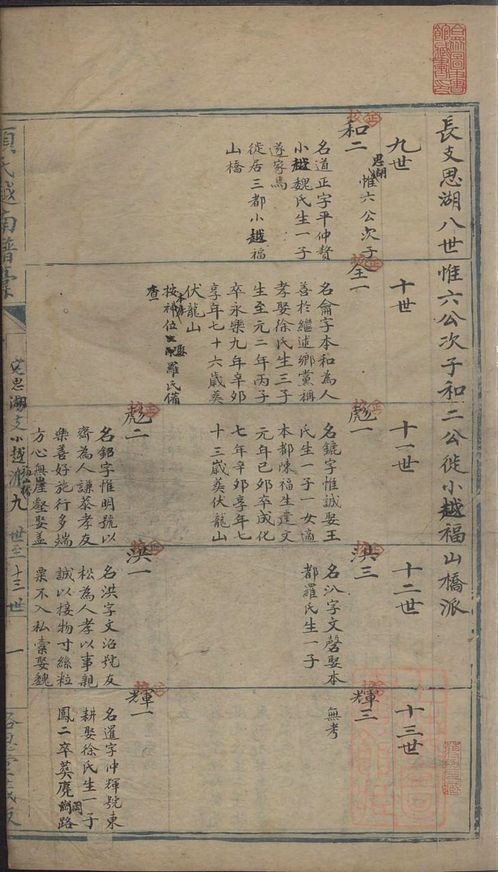 長支思湖八世惟六公次子和二公徙小越福山橋派
九世
和二
思湖
惟六公次子
名道正字平仲贅
小越魏氏生一子
遂家焉
徙居三都小越福
山橋
十世
全一
名侖字本和為人
善於繼述鄉黨稱
孝娶徐氏生三子
生至元二年丙子
卒永樂九年辛卯
享年七十六歲葵
伏龍山
按神位
娶羅氏備
查
十一世
彪一
名鑣字惟誠娶王
氏生一子一女適
本都陳福生建文
元年己卯卒成化
七年辛卯享年七
十三歲葵伏龍山
彪二
名鋁字惟明號以
齊為人謙恭孝友
樂善好施行多端
方心無崖壑娶孟
十二世
淇三
名汃字文磬娶本
都羅氏生一子
淇一
名洪字文治號友
松為人孝以事親
誠以接物寸絲粒
粟不入私橐娶魏
十三世
輝三
無考
輝一
名暹字仲輝號東
耕娶徐氏生一子
鳳二卒葵鹿路
項氏越南譜
支思湖支小越派九世至十三世
一